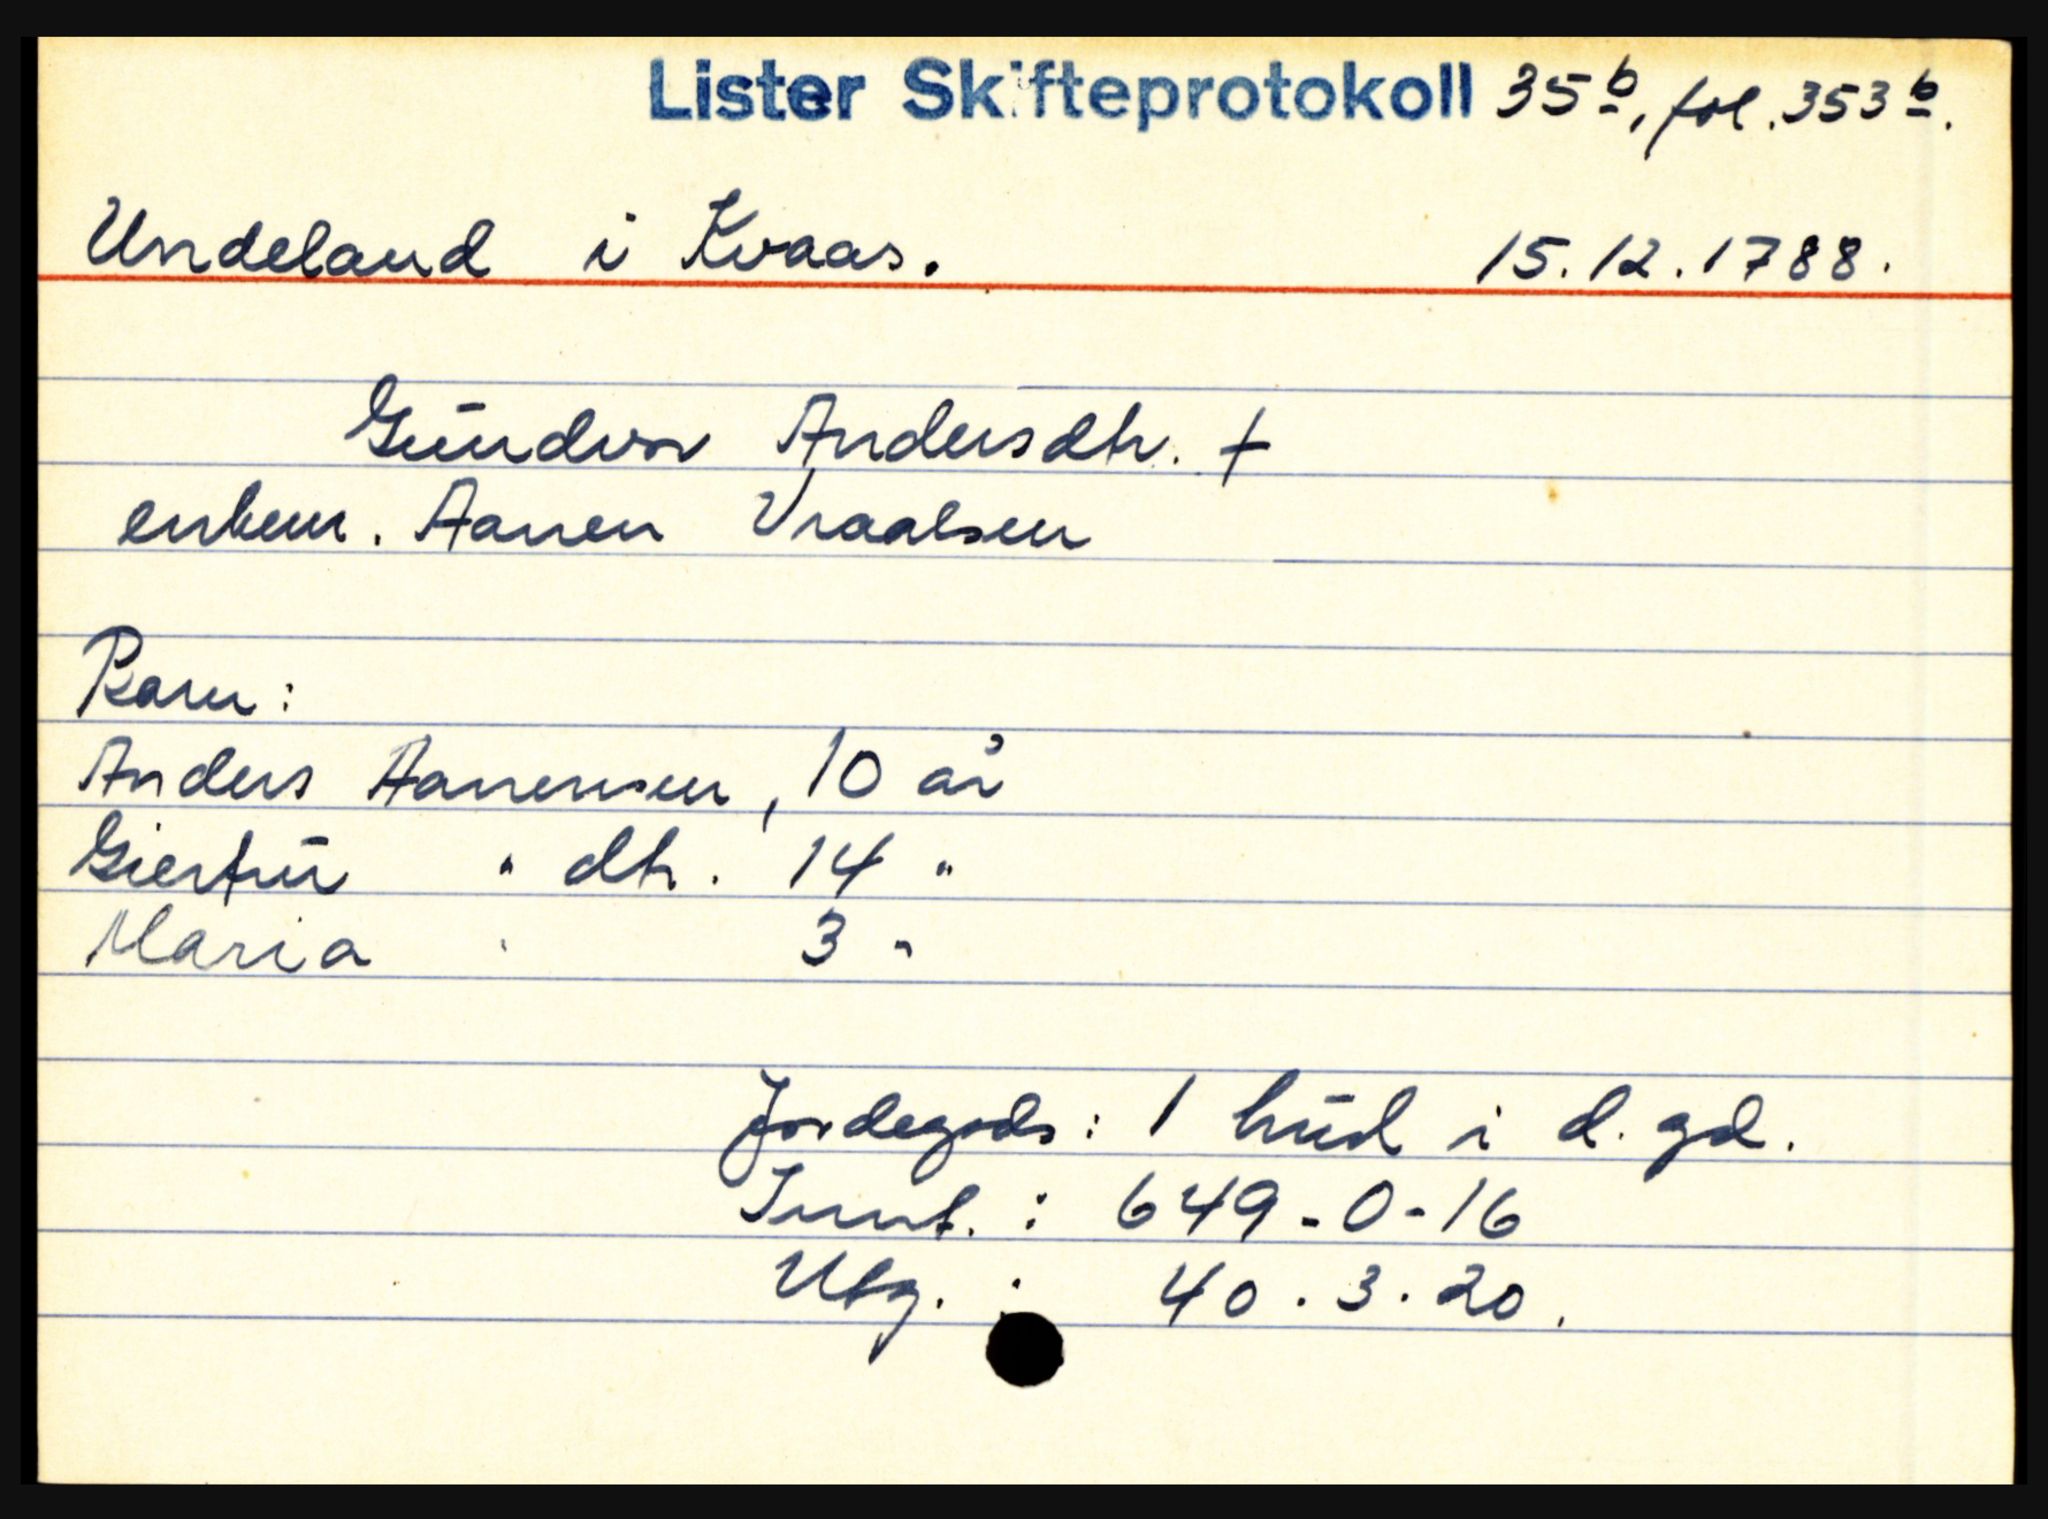 Lister Skifteprotokoll 35b, fol. 353b.
Undeland i Kvaas. 15.12.1788.
Gundvor Andersdtr. †
enkem. Aanen Vraalsen
Barn:
Anders Aanensen, 10 år
Giertru " dtr. 14 "
Maria " 3 "
Jordegods: 1 hud i d. gd.
Innt. : 649-0-16
Utg. : 40.3.20.